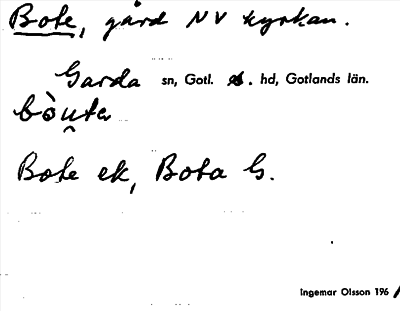 Bote, gård NV kyrkan.
Garda sn, Gotl. s. hd, Gotlands län.
bòu̯ta
Bote ek, Bota G.
Ingemar Olsson 196